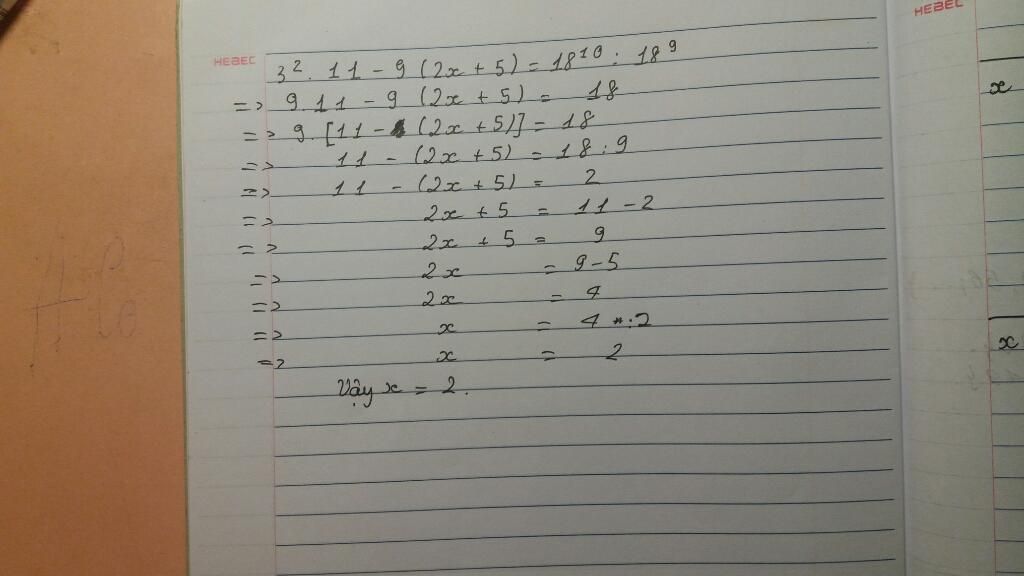 HEBEC
HEBEC
3². 11 - 9 (2x + 5) = 18¹⁰ : 18⁹
=> 9.11 - 9 (2x + 5) = 18
=> 9.[11 - (2x + 5)] = 18
=> 11 - (2x + 5) = 18 : 9
=> 11 - (2x + 5) = 2
=> 2x + 5 = 11 - 2
=> 2x + 5 = 9
=> 2x = 9 - 5
=> 2x = 4
=> x = 4 : 2
=> x = 2
Vậy x = 2.
x
x